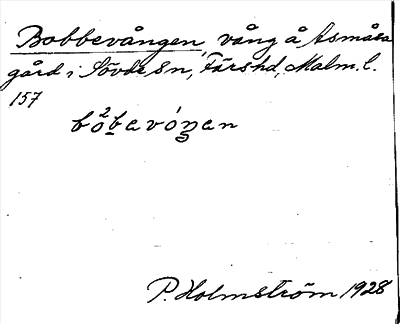 Bobbevången, vång å Asmåsa
gård i Sövde Sn, Färs hd, Malm. l.
157
bo²bavóŋen
P. Holmström 1928